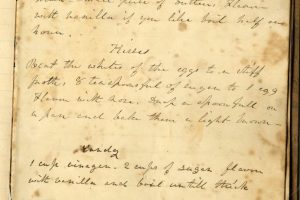 piece of butter. Flavor
with vanilla if you like boil half an
hour.
Kisses
Beat the whites of the eggs to a stiff
froth, 8 teaspoonsful of sugar to 1 egg
Flavor with rose. Drop a spoonfull on
a pan and bake them a light brown-
Candy
1 cup vinegar. 2 cups of sugar flavor
with vanilla and boil untill thick